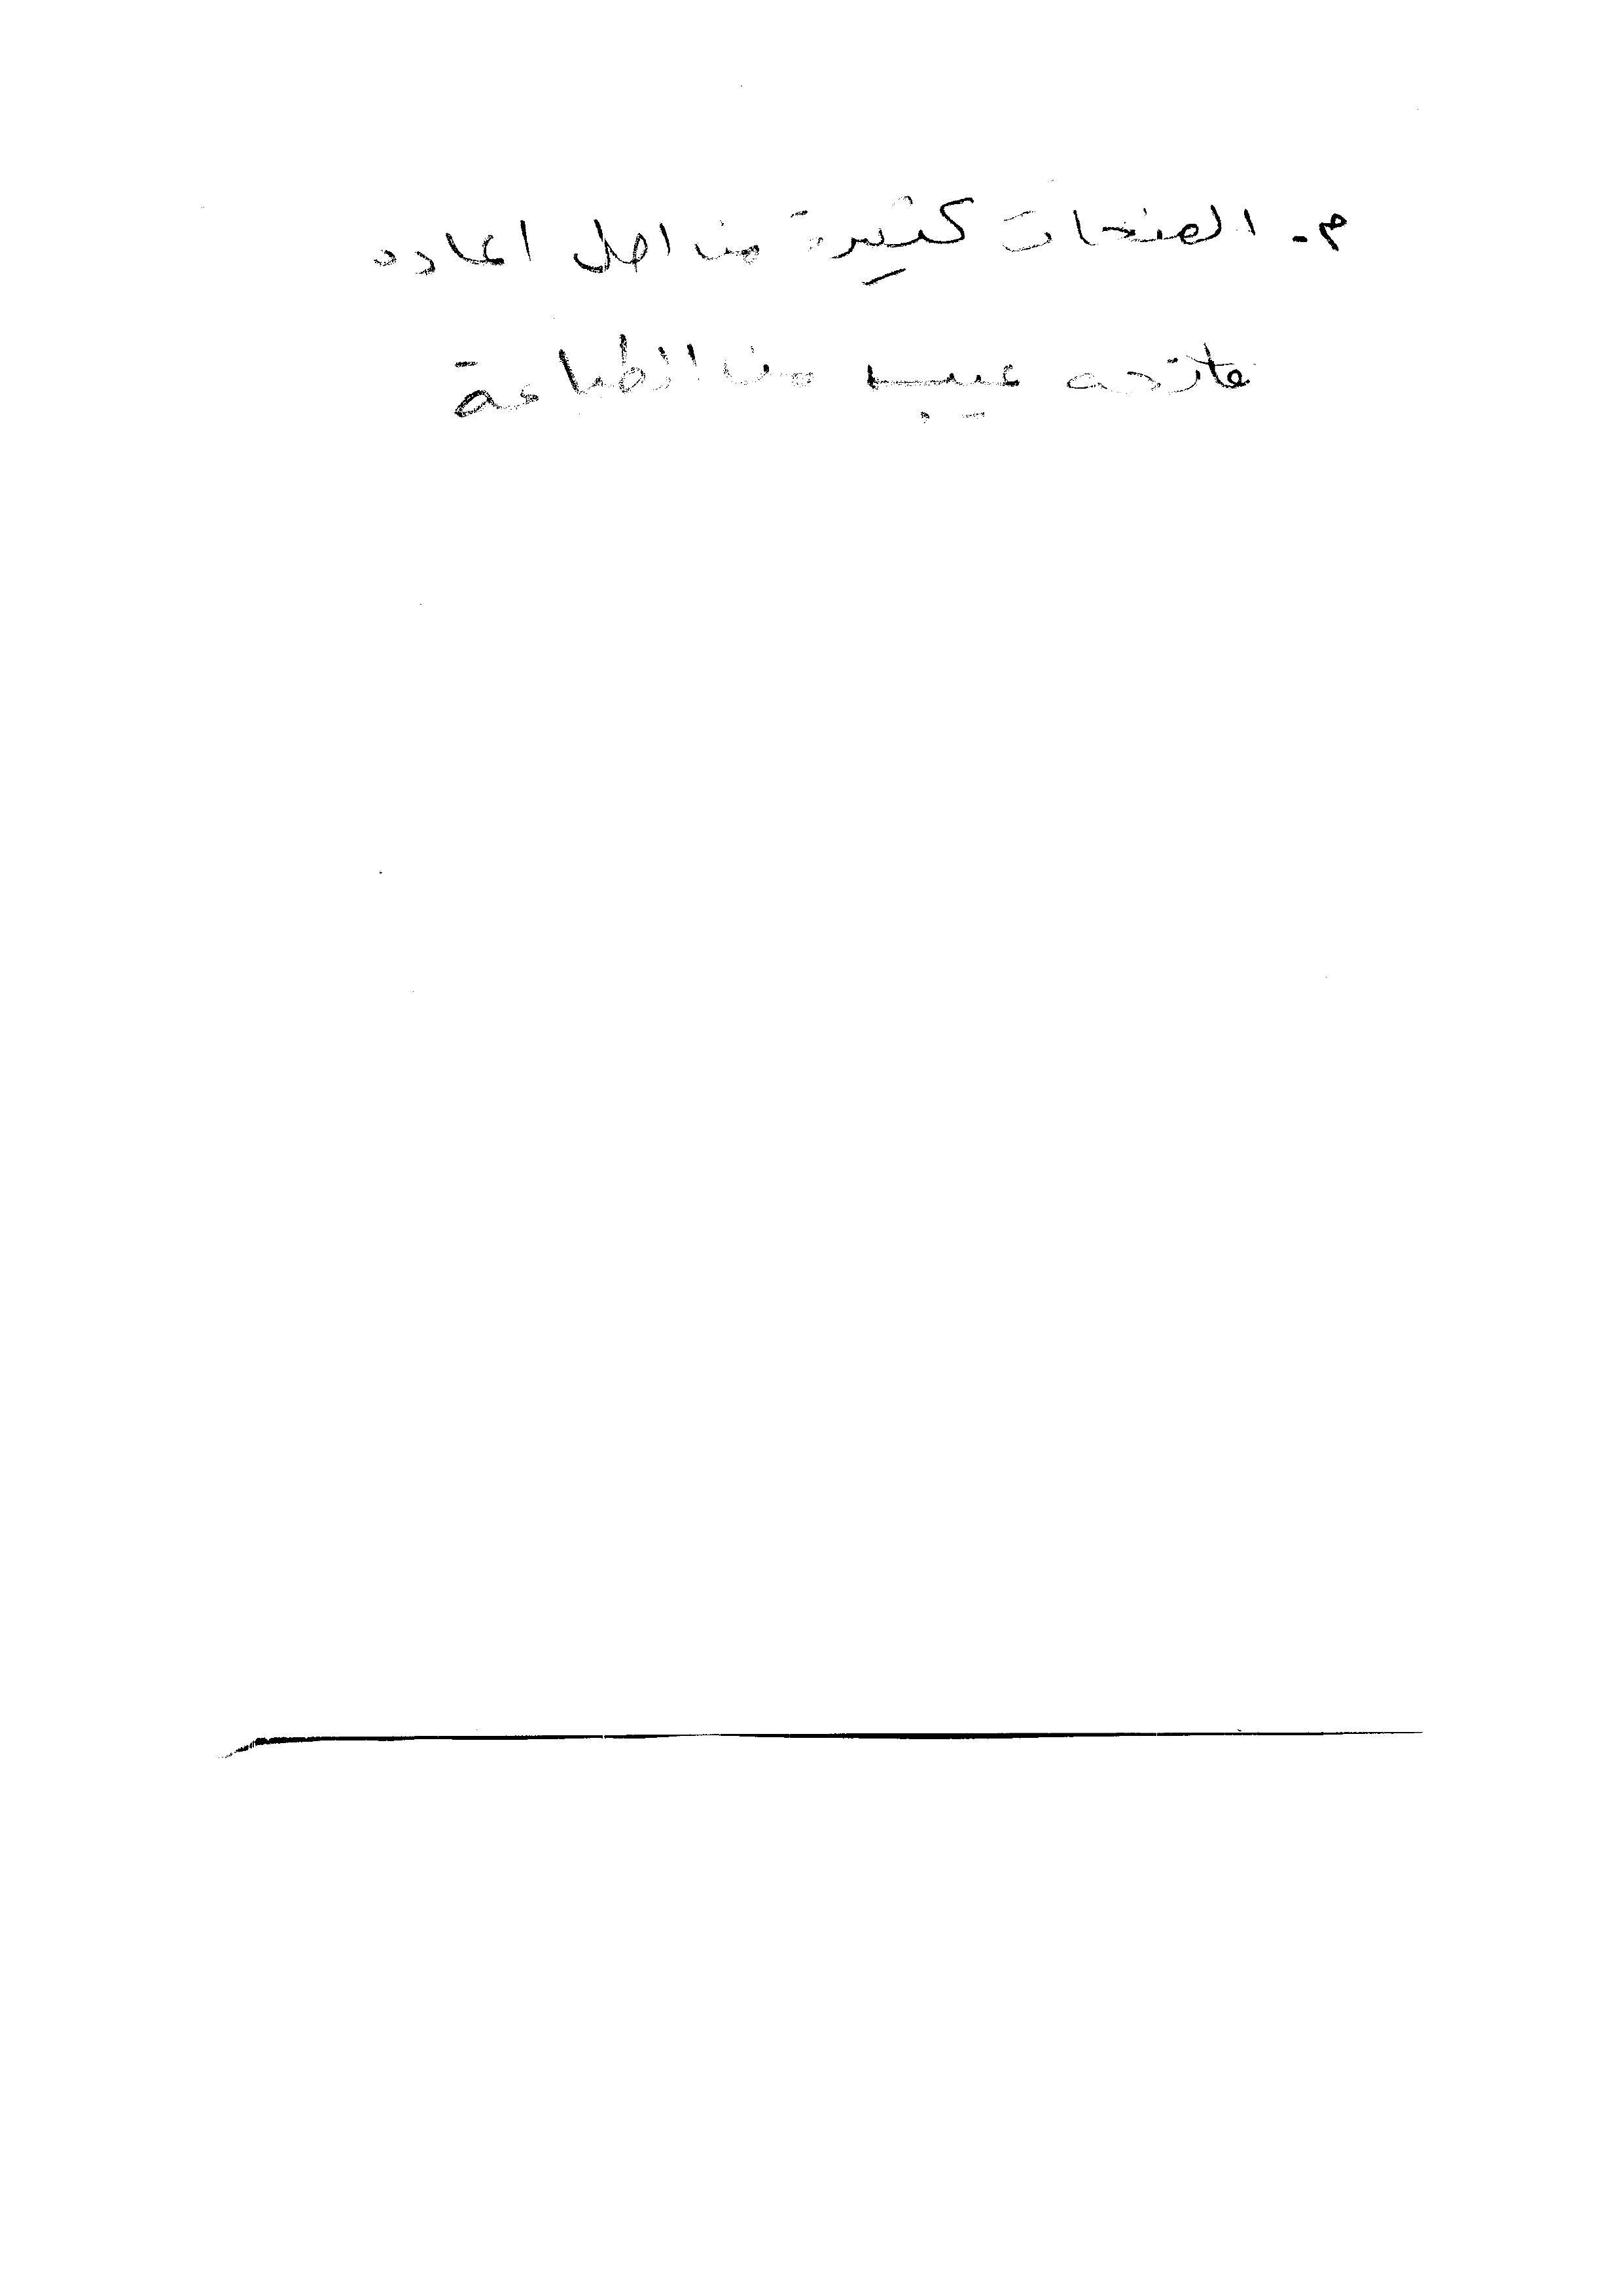 م. الصفحات كثيرة من اصل اعداده
فاتحه عيب من الطباعة